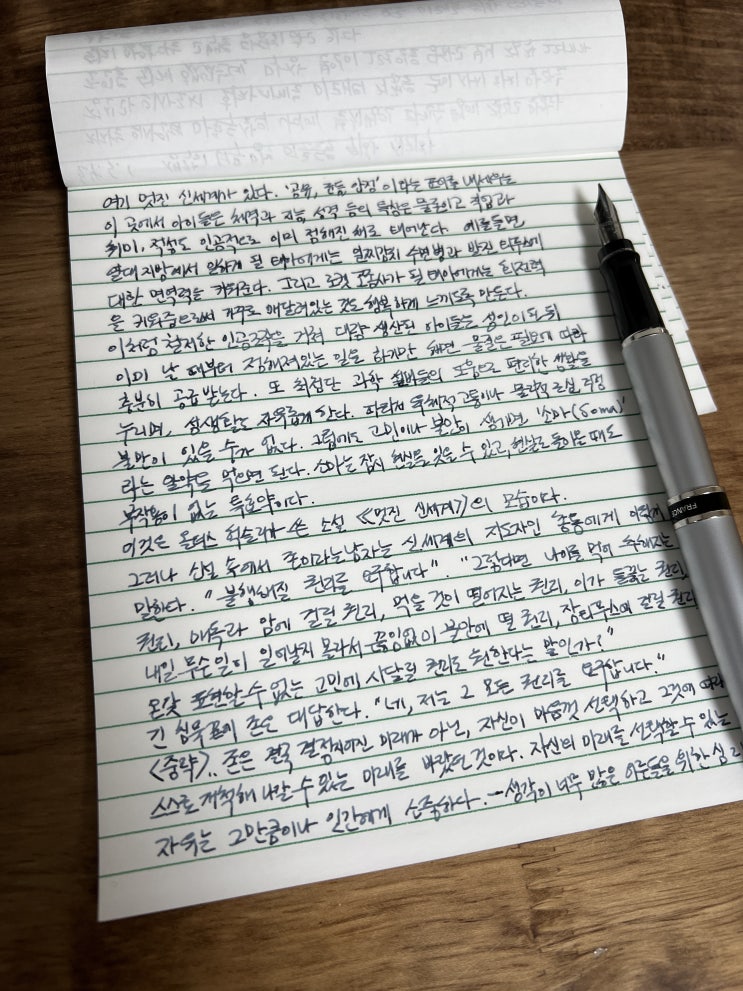 여기 멋진 신세계가 있다. '공유, 균등, 안정'이라는 표어를 내세우는
이 곳에서 아이들은 체력과 지능, 성격 등의 특성은 물론이고 직업과
취미, 적성도 인공적으로 이미 정해진 채로 태어난다. 예를들면,
열대지방에서 일하게 될 태아에게는 열찌감치 수면병과 발진티푸스에
대한 면역력을 키워준다. 그리고 로켓 조종사가 될 태아에게는 회전력
을 키워줌으로써 거꾸로 매달려있는 것도 행복하게 느끼도록 만든다.
이처럼 철저한 인공규격을 거쳐 대량 생산된 아이들은 성인이 된 뒤
이미 날 때부터 정해져있는 일을 하기만 하면 물질은 필요에 따라
충분히 공급받는다. 또 최첨단 과학 설비들의 도움으로 편리한 생활을
누리며, 성생활도 자유롭게 한다. 따라서 육체적 고통이나 물리적 근심, 걱정
불만이 있을 수가 없다. 그럼에도 고민이나 불안이 생기면 '소마(Soma)'
라는 알약을 먹으면 된다. 소마는 잠시 현실을 잊을 수 있고, 현실로 돌아올 때도
부작용이 없는 특효약이다.
이것은 올더스 헉슬리가 쓴 소설 《멋진 신세계》의 모습이다.
그러나 소설 속에서 존이라는 남자는 신세계의 지도자인 총통에게 이렇게
말한다. "불행해질 권리를 요구합니다". "그렇다면 나이를 먹어 추해지는
권리, 매독과 암에 걸릴 권리, 먹을 것이 떨어지는 권리, 이가 들끓는 권리,
내일 무슨일이 일어날지 몰라서 끊임없이 불안에 떨 권리, 장티푸스에 걸릴 권리
온갖 표현할 수 없는 고민에 시달릴 권리도 원한다는 말인가?"
긴 침묵 끝에 존은 대답한다. "네, 저는 그 모든 권리를 요구합니다."
<중략>.. 존은 결국 결정지어진 미래가 아닌, 자신이 마음껏 선택하고 그것에 따라
스스로 개척해 나갈 수 있는 미래를 바랐던 것이다. 자신의 미래를 선택할 수 있는
자유는 그만큼이나 인간에게 소중하다. - 생각이 너무 많은 어른들을 위한 심리
FRANCE